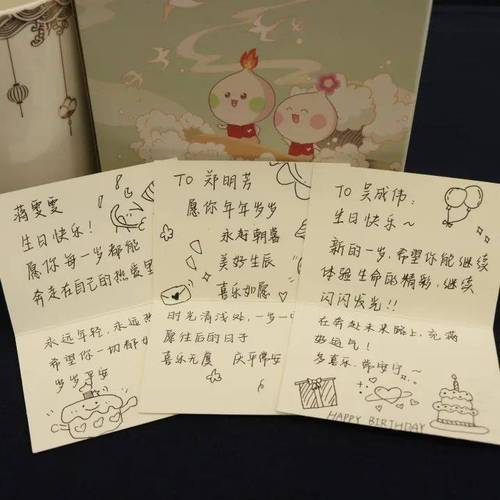 蒋雯雯
生日快乐！
愿你每一岁都能
奔走在自己的热爱里
永远年轻，永远热
希望你一切都如
岁岁平安
TO 郑明芳
愿你年年岁岁
永好朝暮
美好生辰
喜乐如愿
时光清浅处，一步一
愿往后的日子
喜乐无虞 庆平佛安
TO 吴成伟：
生日快乐～
新的一岁，希望你能继续
体验生命的精彩，继续
闪闪发光！！
在奔赴未来路上，充满
好运气！
多喜乐，常安宁～
HAPPY BIRTHDAY